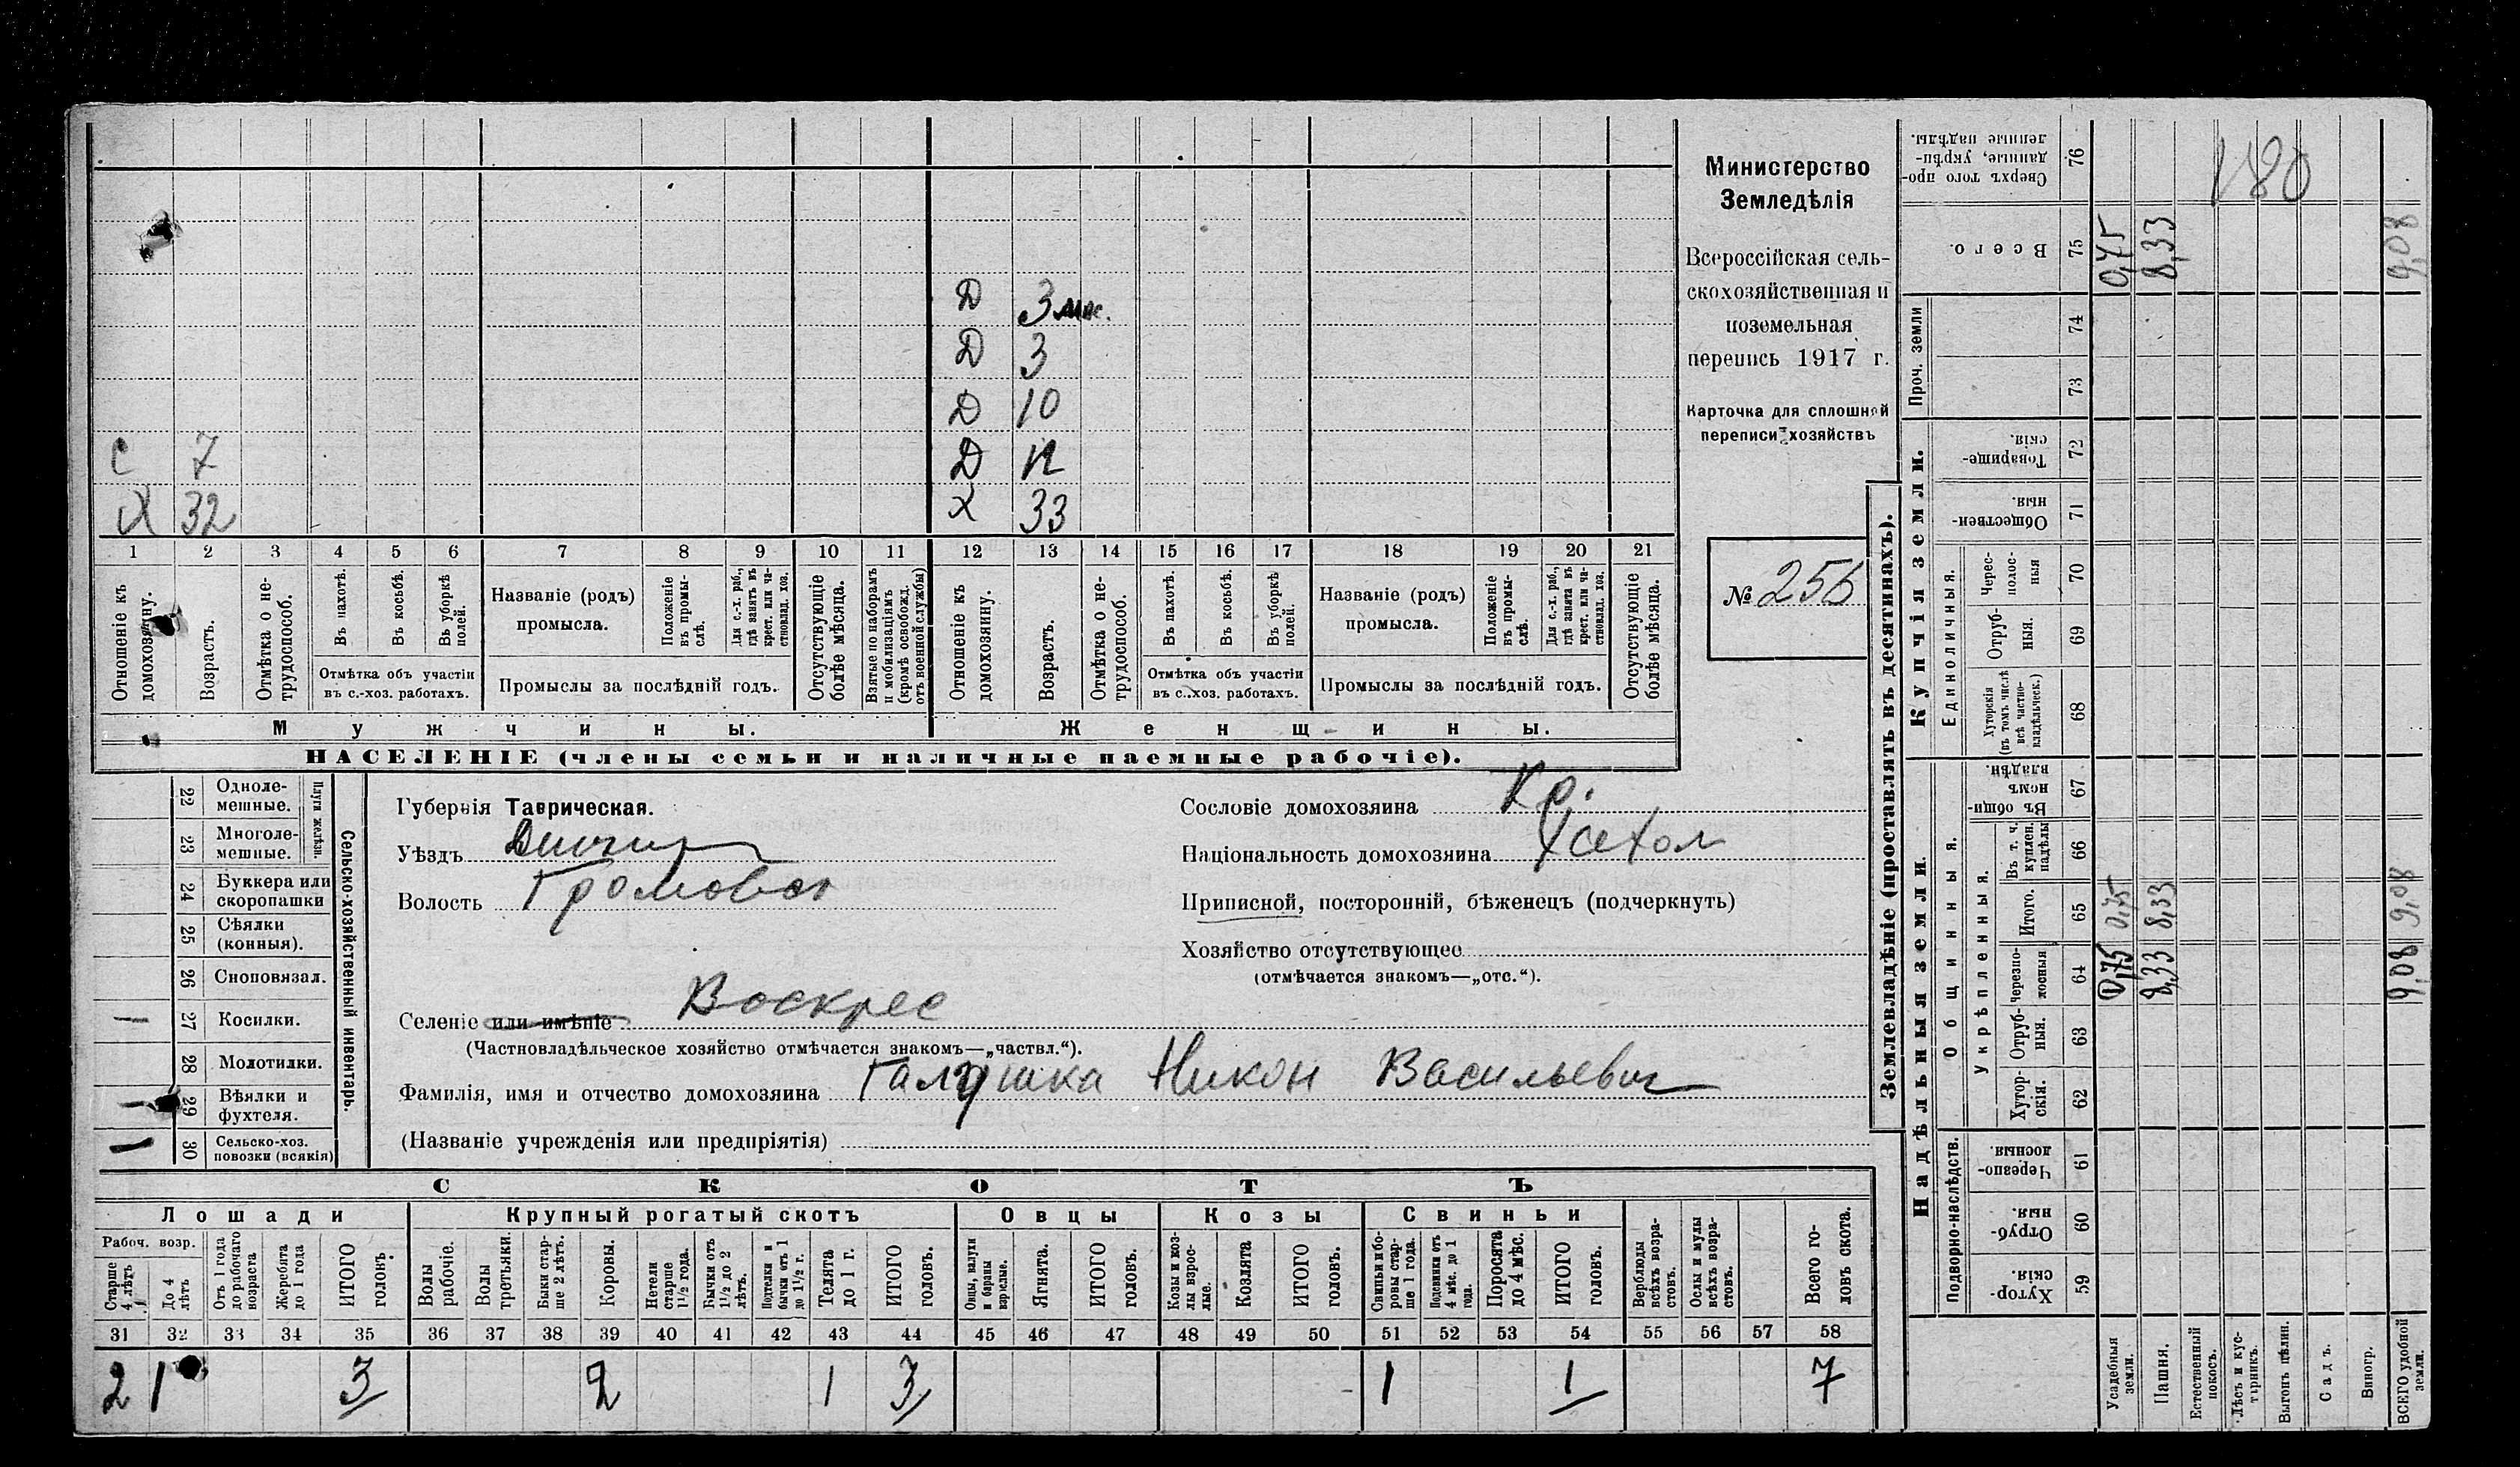 Д 3 мес.
Д 3
Д 10
С 7 Д 12
Х 32 Х 33
1 2 3 4 5 6 7 8 9 10 11 12 13 14 15 16 17 18 19 20 21
Отношеніе къ домохозяину.
Возрастъ.
Отмѣтка о не-
трудоспособ.
Въ пахотѣ.
Въ косьбѣ.
Въ уборкѣ
полей.
Отмѣтка объ участіи
въ с.-хоз. работахъ.
Названіе (родъ)
промысла.
Положеніе
въ промы-
слѣ.
Для с.-х. раб.,
гдѣ занятъ въ
крест. или ча-
стновлад. хоз.
Промыслы за послѣдній годъ.
Отсутствующіе
болѣе мѣсяца.
Взятые по наборамъ
и мобилизаціямъ
(кромѣ освобожд.
отъ военной службы)
Отношеніе къ
домохозяину.
Возрастъ.
Отмѣтка о не-
трудоспособ.
Въ пахотѣ.
Въ косьбѣ.
Въ уборкѣ
полей.
Отмѣтка объ участіи
въ с.-хоз. работахъ.
Названіе (родъ)
промысла.
Положеніе
въ промы-
слѣ.
Для с.-х. раб.,
гдѣ занята въ
крест. или ча-
стновлад. хоз.
Промыслы за послѣдній годъ.
Отсутствующіе
болѣе мѣсяца.
Мужчины. Женщины.
НАСЕЛЕНІЕ (члены семьи и наличные наемные рабочіе).
Министерство
Земледѣлія
Всероссійская сель-
скохозяйственная и
поземельная
перепись 1917 г.
Карточка для сплошной
переписи хозяйствъ
№ 256
22 Одноле-
мешные.
23 Многоле-
мешные.
Плуги желѣзн.
24 Буккера или
скоропашки
25 Сѣялки
(конныя).
26 Сноповязал.
27 Косилки.
28 Молотилки.
29 Вѣялки и
фухтеля.
30 Сельско-хоз.
повозки (всякія)
Сельско-хозяйственный инвентарь.
Губернія Таврическая.
Уѣздъ
Волость Громовск
Селеніе или имѣніе Воскрес
(Частновладѣльческое хозяйство отмѣчается знакомъ—„частвл.“).
Фамилія, имя и отчество домохозяина Галушка Никон Васильевич
(Названіе учрежденія или предпріятія)
Сословіе домохозяина Кр.
Національность домохозяина
Приписной, посторонній, бѣженецъ (подчеркнуть)
Хозяйство отсутствующее
(отмѣчается знакомъ—„отс.“).
СКОТЪ
Лошади Крупный рогатый скотъ Овцы Козы Свиньи
Рабоч. возр.
Старше
4 лѣтъ
До 4
лѣтъ
Отъ 1 года
до рабочаго
возраста
Жеребята
до 1 года
ИТОГО
головъ.
Волы
рабочіе.
Волы
третьяки.
Быки стар-
ше 2 лѣтъ.
Коровы.
Нетели
старше
1½ года.
Бычки отъ
1½ до 2
лѣтъ.
Подтелки и
бычки отъ 1
до 1½ г.
Телята
до 1 г.
ИТОГО
головъ.
Овцы, валухи
и бараны
взрослые.
Ягнята.
ИТОГО
головъ.
Козы и коз-
лы взрос-
лые.
Козлята
ИТОГО
головъ.
Свиньи и бо-
ровы стар-
ше 1 года.
Подсвинки отъ
4 мѣс. до 1
года.
Поросята
до 4 мѣс.
ИТОГО
головъ.
Верблюды
всѣхъ возра-
стовъ.
Ослы и мулы
всѣхъ возра-
стовъ.
Всего го-
ловъ скота.
31 32 33 34 35 36 37 38 39 40 41 42 43 44 45 46 47 48 49 50 51 52 53 54 55 56 57 58
2 1 3 2 1 3 1 1 7
Землевладѣніе (проставлять въ десятинахъ).
Надѣльныя земли.
Купчія земли.
Проч. земли
Подворно-наслѣдств.
Общинныя.
Укрѣпленныя.
Единоличныя.
Сверхъ того про-
данные, укрѣп-
ленные надѣлы.
76
180
Всего.
75 0,75 8,33 9,08
74
73
Товарище-
скія.
72
Обществен-
ныя
71
Черес-
полос-
ныя
70
Отруб-
ныя.
69
Хуторскія
(въ томъ числѣ
всѣ частно-
владѣльческ.)
68
Въ общи-
номъ
владѣн.
67
Въ т. ч.
куплен.
надѣлы
66
Итого.
65 0,75 8,33 9,08
Черезпо-
лосныя
64 0,75 8,33 9,08
Отруб-
ныя.
63
Хутор-
скія.
62
Черезпо-
лосныя
61
Отруб-
ныя.
60
Хутор-
скія.
59
Усадебныя
земли.
Пашня.
Естественный
покосъ.
Лѣсъ и кус-
тарникъ.
Выгонъ цѣлин.
Садъ.
Виногр.
ВСЕГО удобной
земли.